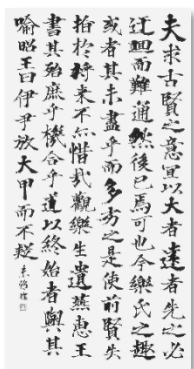 夫求古賢之意宜以大者遠者先之必
迂迴而難通然後已焉可也今樂氏之趣
或者其未盡乎而多劣之是使前賢失
指於將来不亦惜哉觀樂生遺燕惠王
書其殆庶乎機合乎道以終始者與其
喻昭王曰伊尹放大甲而不疑